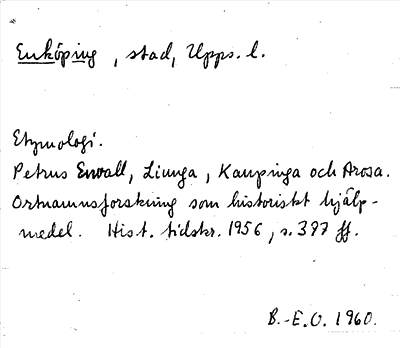 Enköping, stad, Upps. l.
Etymologi.
Petrus Envall, Liunga, Kaupinga och Arosa.
Ortnamnsforskning som historiskt hjälp-
medel. Hist. tidskr. 1956, s. 377 ff.
B.-E.O. 1960.